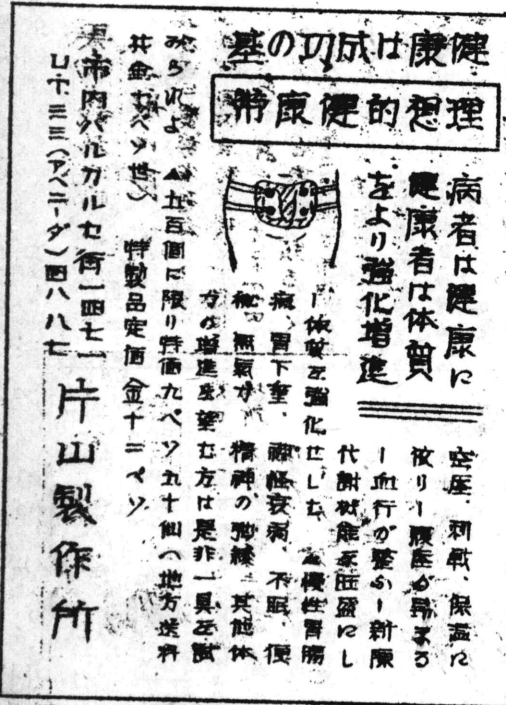 健康は成功の基
理想的健康帯
病者は健康に
健康者は体質
をより強化増進
空圧、刺戟、保温に
依り腹圧の昂まる
ー血行が整ふー新陳
代謝機能を旺盛にし
ー体質を強化せしむ △慢性胃腸
病、胃下垂、神経衰弱、不眠、便
秘、無氣力 精神の弛緩 其他体
力の増進を望む方は是非一具を試
みられよ △五百個に限り特価九ペソ五十仙(地方送料
共金十ペソ也) 特製品定価 金十二ペソ
市内バルカルセ街一四七一 片山製作所
U十三三(アベニーダ)四八八七